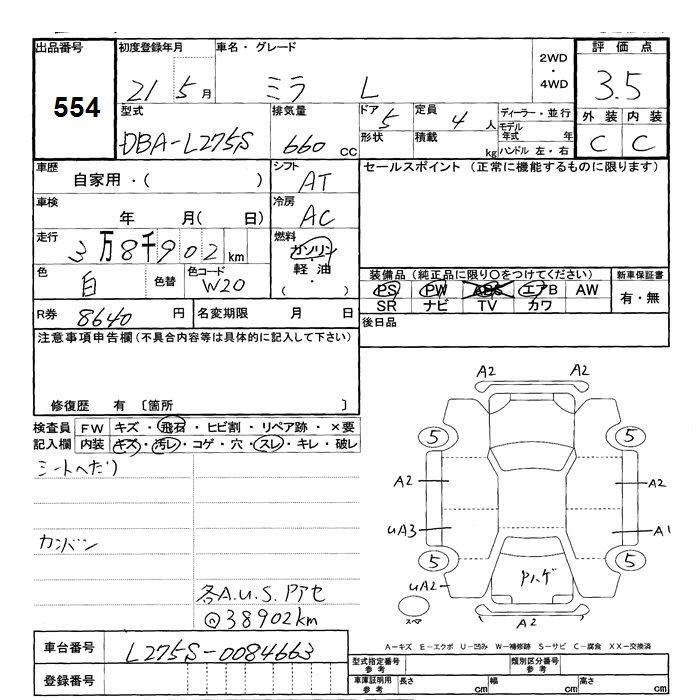 出品番号 初度登録年月 車名・グレード 2WD・4WD 評価点
554 21 5月 ミラ L 3.5
型式 排気量 ドア 5 定員 4人 ディーラー・並行 外装 内装
DBA-L275S 660cc 形状 積載 kg モデル年式 年 C C
ハンドル 左・右
車歴 自家用・( ) シフト AT セールスポイント (正常に機能するものに限ります)
車検 年 月( 日) 冷房 AC
走行 3万8千902km 燃料 ガソリン・軽油 ( ・ )
色 白 色替 色コード W20
装備品 (純正品に限り○をつけてください) 新車保証書
PS PW ABS エアB AW 有・無
SR ナビ TV カワ
R券 8640円 名変期限 月 日 後日品
注意事項申告欄 (不具合内容等は具体的に記入して下さい)
修復歴 有 〔箇所 〕
検査員 FW キズ・飛石・ヒビ割・リペア跡・×要
記入欄 内装 キズ・汚レ・コゲ・穴・スレ・キレ・破レ
シートへたり
カンバン
各A.U.S.Pアセ
@38902km
A2 A2
5 5
A2 A2
UA3 A1
5 5
UA2 Pハゲ
スペア A2
A-キズ E-エクボ U-凹み W-補修跡 S-サビ C-腐食 XX-交換済
車台番号 L275S-0084663
登録番号
型式指定番号 参考 類別区分番号 参考
車庫証明用 参考 長さ cm 幅 cm 高さ cm